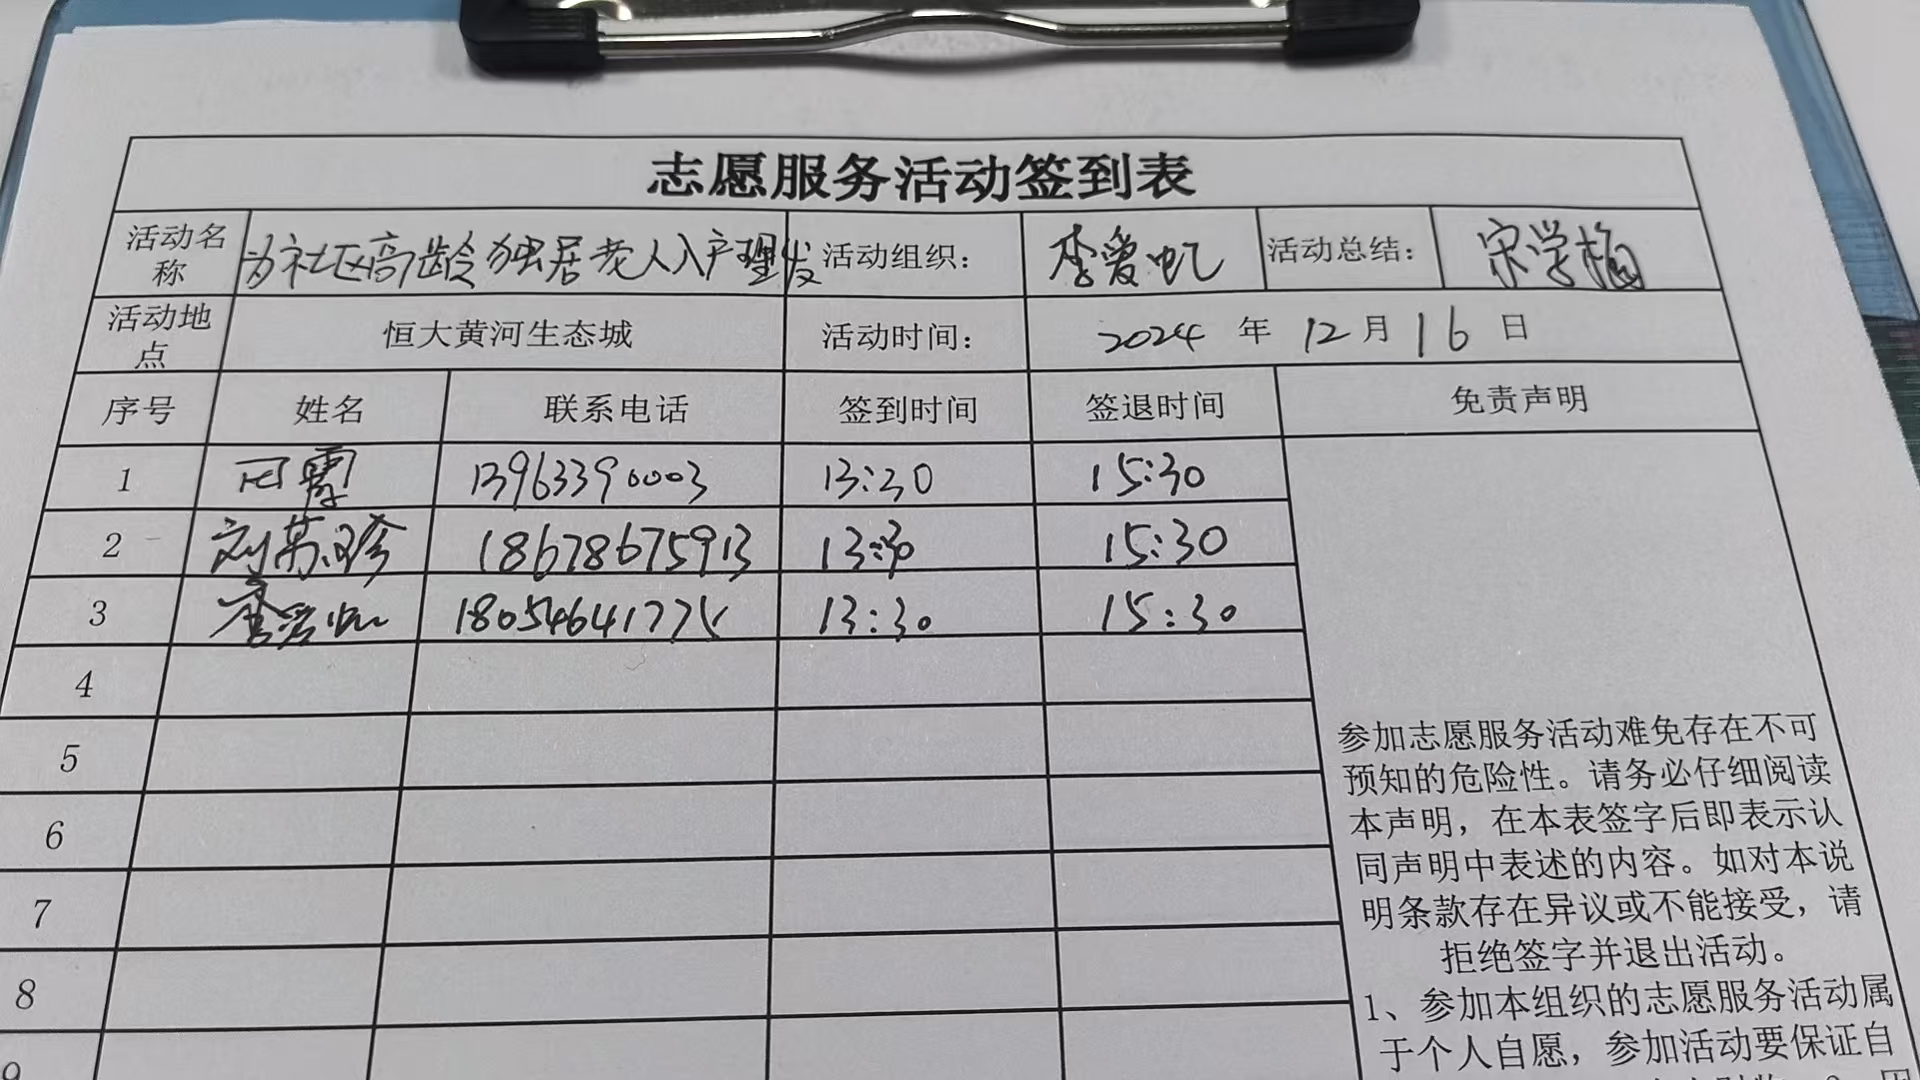 志愿服务活动签到表
活动名称 为社区高龄独居老人入户理发 活动组织： 李爱 活动总结： 宋学梅
活动地点 恒大黄河生态城 活动时间： 2024 年 12 月 16 日
序号 姓名 联系电话 签到时间 签退时间 免责声明
1 13963390003 13:30 15:30
2 刘苏珍 18678675913 13:30 15:30
3 李爱 18054641775 13:30 15:30
4
5
6
7
8
9
参加志愿服务活动难免存在不可
预知的危险性。请务必仔细阅读
本声明，在本表签字后即表示认
同声明中表述的内容。如对本说
明条款存在异议或不能接受，请
拒绝签字并退出活动。
1、参加本组织的志愿服务活动属
于个人自愿，参加活动要保证自